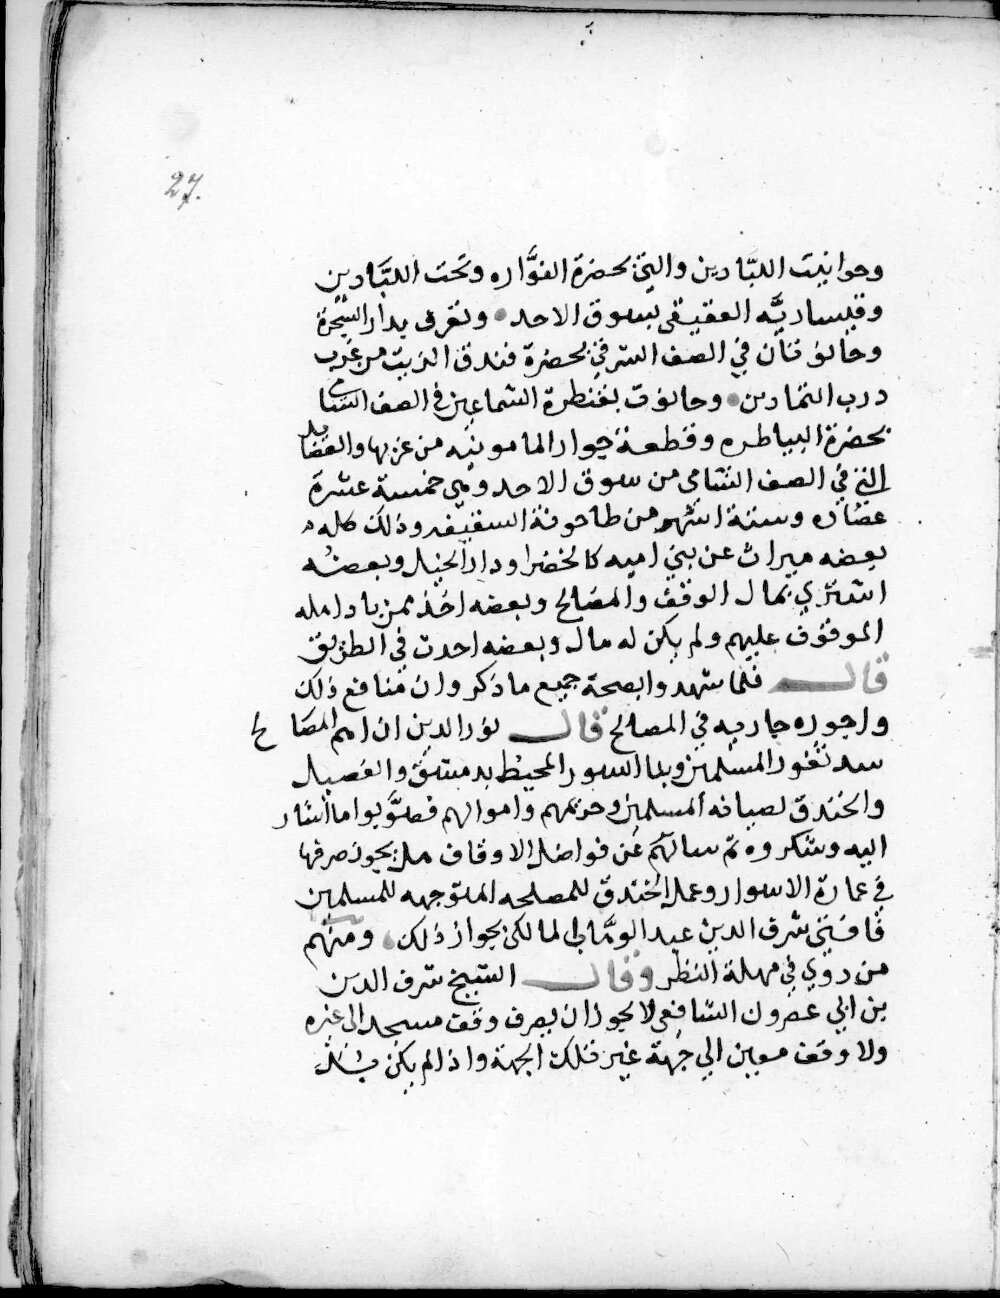 27.
وحوانيت اللبّادين والتي بحضرة الفوَّاره وتحت اللبَّادين
وقيساريَّه العقيقي بسوق الاحد وتعرف بدار الشجرة
وحانوتان في الصف الشرقي بحضرة فندق الزيت من غرب
درب التمارين وحانوت بقنطرة الشماعين في الصف الشامي
بحضرة البياطره وقطعة جوار المامونيه من غربها والفضايل
التي في الصف الشامي من سوق الاحد وهي خمسة عشرة
عضاده وستة اشهر من طاحونة السقيفه وذلك كله
بعضه ميراث عن بني اميه كالخضرا ودار الخيل وبعضه
اشتري بمال الوقف والمصالح وبعضه اخذ ممن باد امله
الموقوف عليهم ولم يكن له مال وبعضه احدث في الطريق
قال فلما شهدوا بصحة جميع ما ذكر وان منافع ذلك
واجوره جاريه في المصالح قال نور الدين ان اهم المصالح
سد ثغور المسلمين وبنا السور المحيط بدمشق والفصيل
والخندق لصيانه المسلمين وحريمهم واموالهم فصوَّبوا ما اشار
اليه وشكروه ثم سالهم عن فواضل الاوقاف هل يجوز صرفها
في عمارة الاسوار وعمل الخندق للمصلحه المتوجهه للمسلمين
فافتى شرف الدين عبد الوهاب المالكي بجواز ذلك ومنهم
من روي في مهلة النظر وقال الشيخ شرف الدين
بن ابي عصرون الشافعي لا يجوز ان يصرف وقف مسجد الى غيره
ولا وقف معين الي جهة غير تلك الجهة واذا لم يكن بد